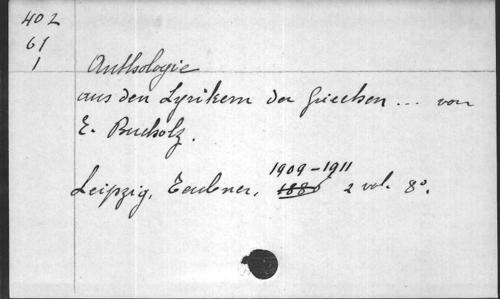 402
61
1
Anthologie
aus den Lyrikern der Griechen ... von
E. Bucholz.
1909-1911
Leipzig, Teubner, 1886 2 vol. 8°.